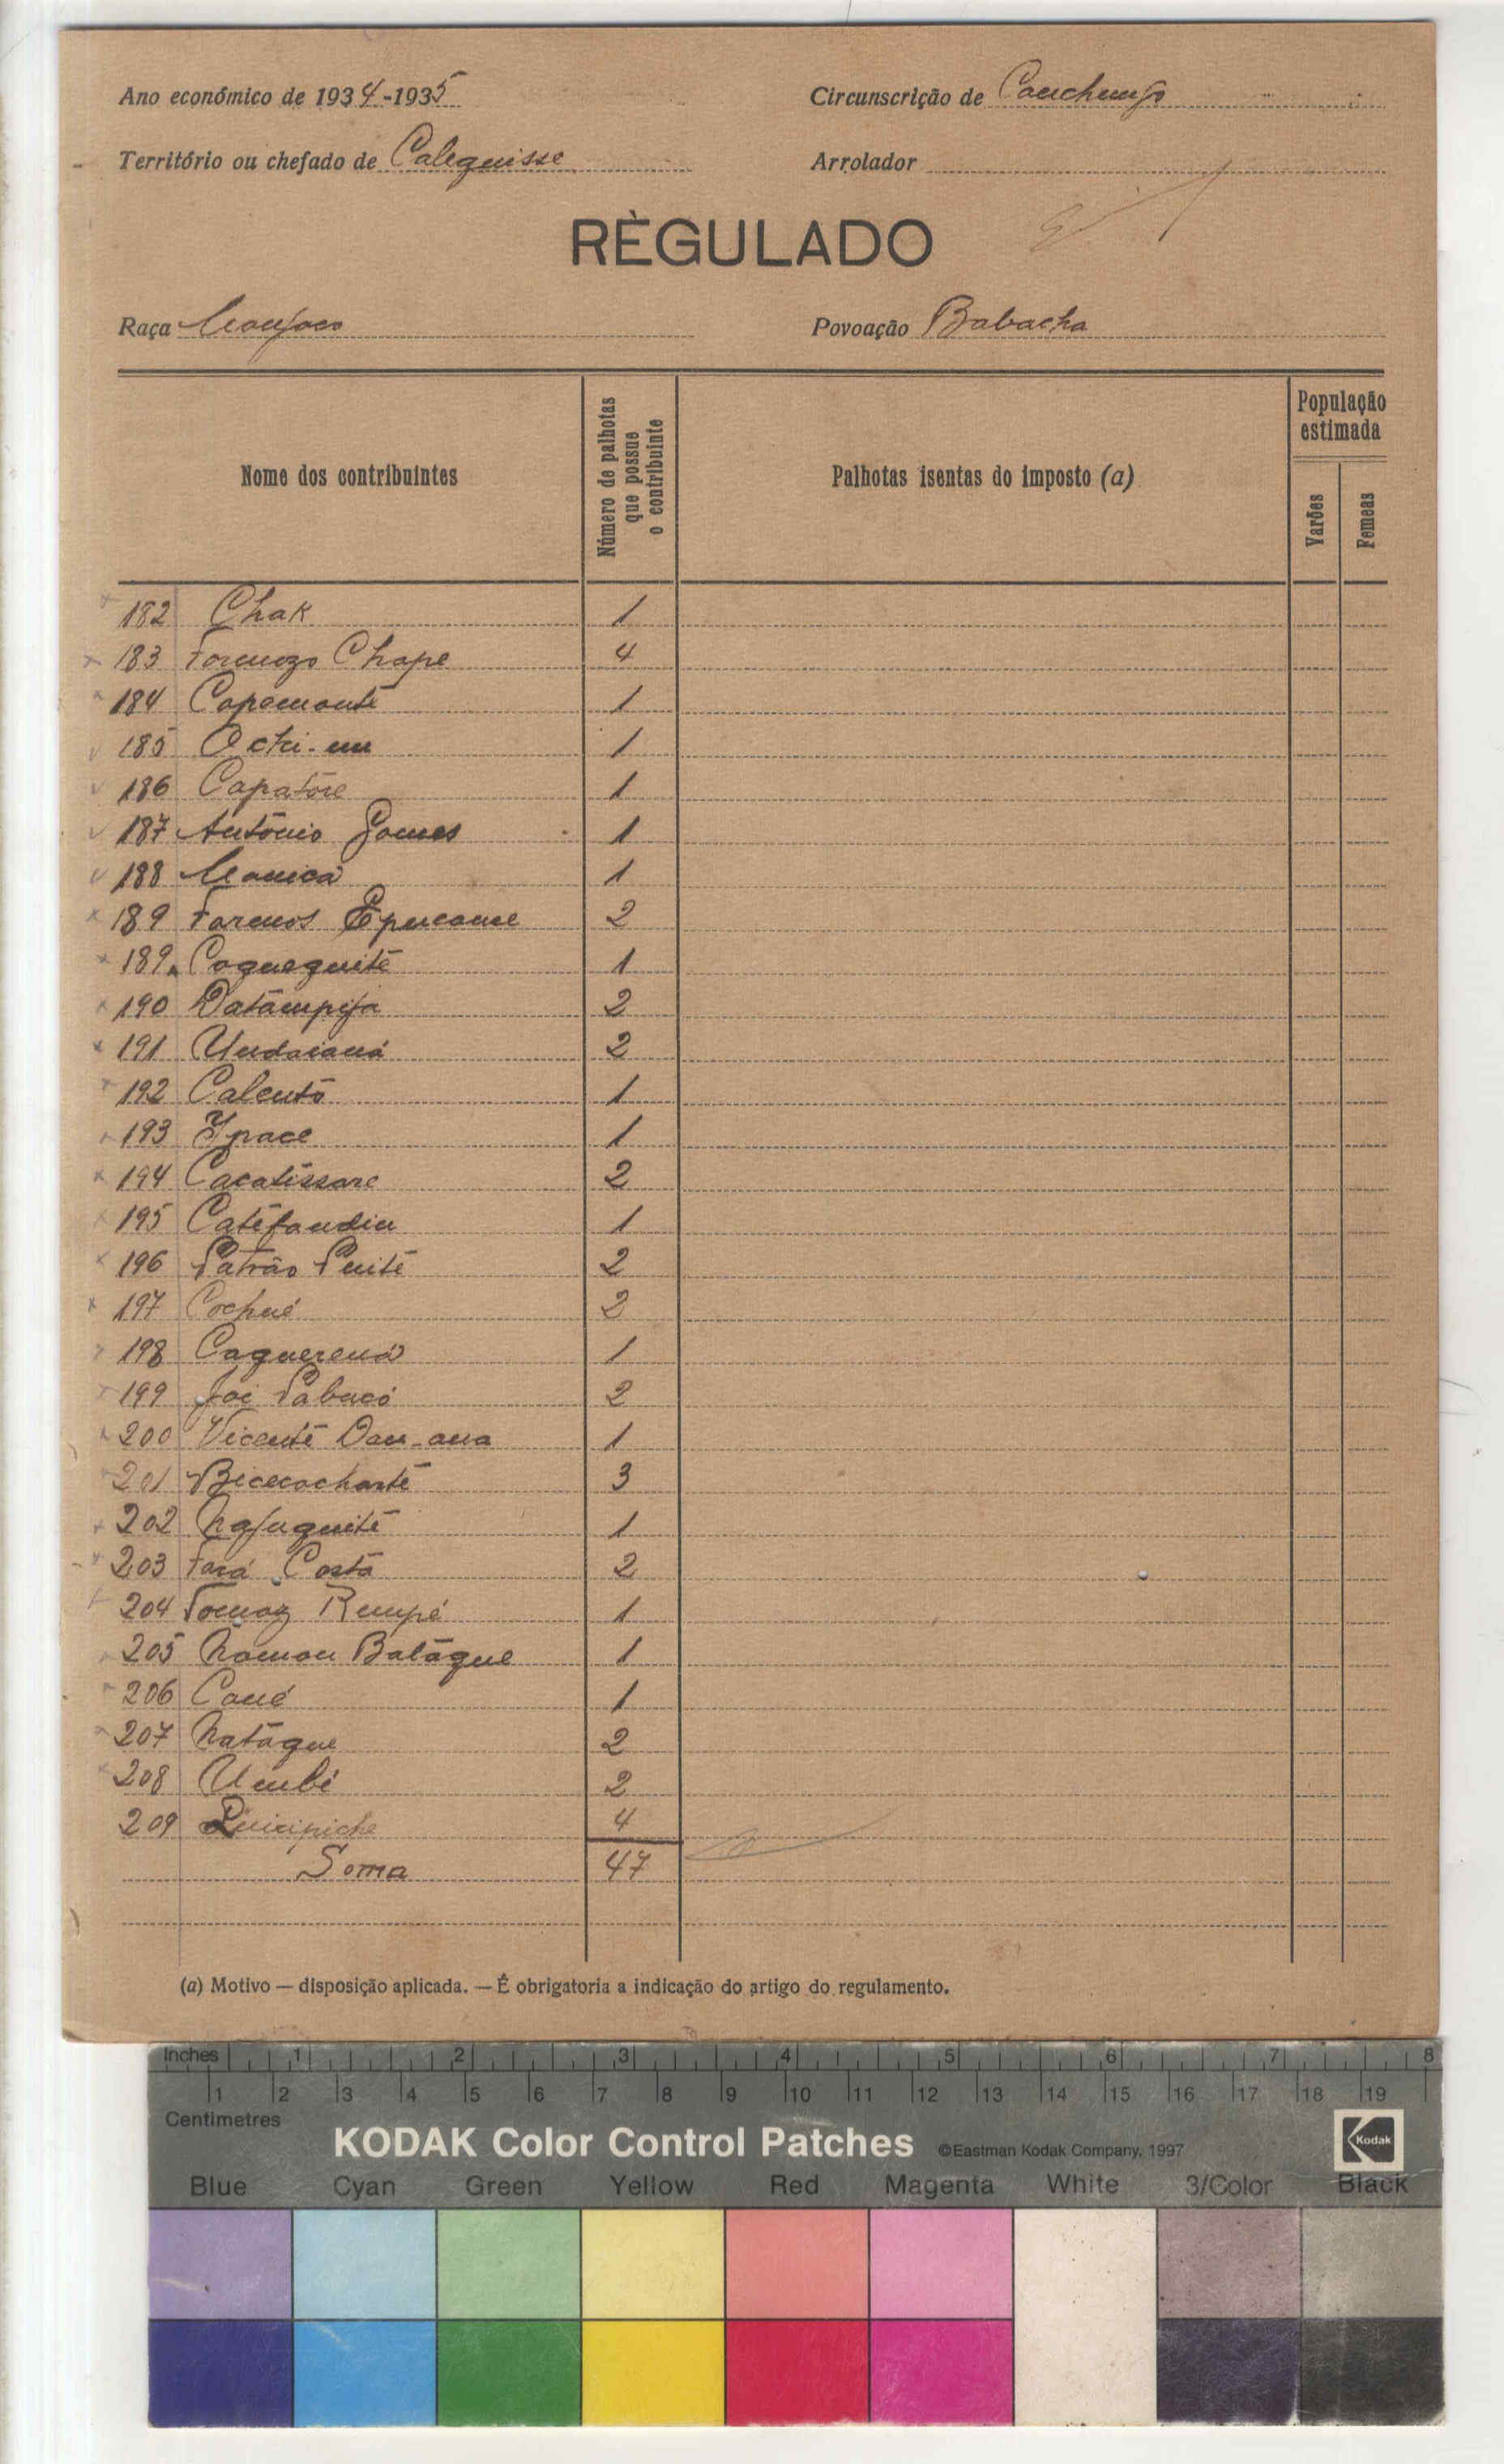 Ano económico de 1934-1935 Circunscrição de Canchungo
Território ou chefado de Calequisse Arrolador
RÈGULADO
Raça Manjaco Povoação Babacha
Nome dos contribuintes Número de palhotas que possue o contribuinte Palhotas isentas do imposto (a) População estimada
Varões Femeas
182 Chak 1
183 Chape 4
184 Capemonte 1
185 1
186 Capatóre 1
187 António Gomes 1
188 Manica 1
189 2
189A Coqueguité 1
190 Datámpifa 2
191 Undaianá 2
192 Calentó 1
193 Ipace 1
194 Cacatissare 2
195 Catéfandin 1
196 Patrão 2
197 Cochué 2
198 Caquerená 1
199 2
200 Vicente 1
201 3
202 Nafuquité 1
203 Costa 2
204 Tomaz 1
205 Balágue 1
206 Cané 1
207 Natágue 2
208 Umbé 2
209 4
Soma 47
(a) Motivo — disposição aplicada. — É obrigatoria a indicação do artigo do regulamento.
Inches 1 2 3 4 5 6 7 8
1 2 3 4 5 6 7 8 9 10 11 12 13 14 15 16 17 18 19
Centimetres
KODAK Color Control Patches ©Eastman Kodak Company, 1997 Kodak
Blue Cyan Green Yellow Red Magenta White 3/Color Black